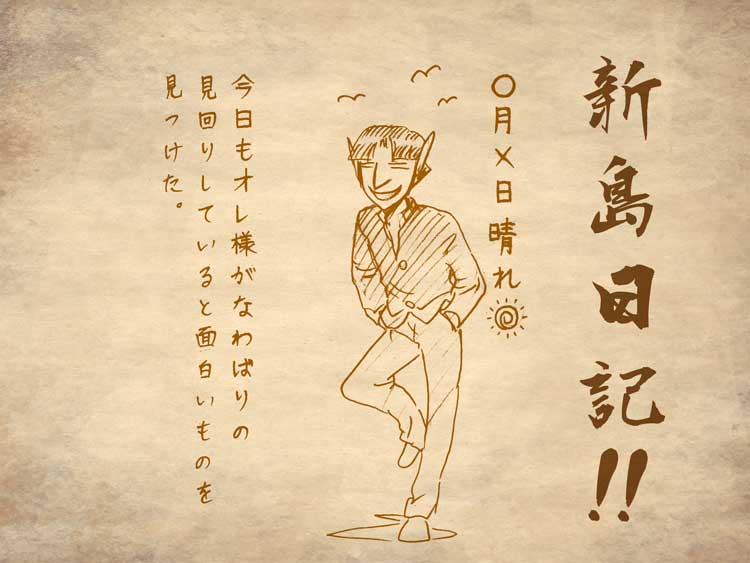 新島日記!!
〇月×日 晴れ
今日もオレ様がなわばりの
見回りしていると面白いものを
見つけた。